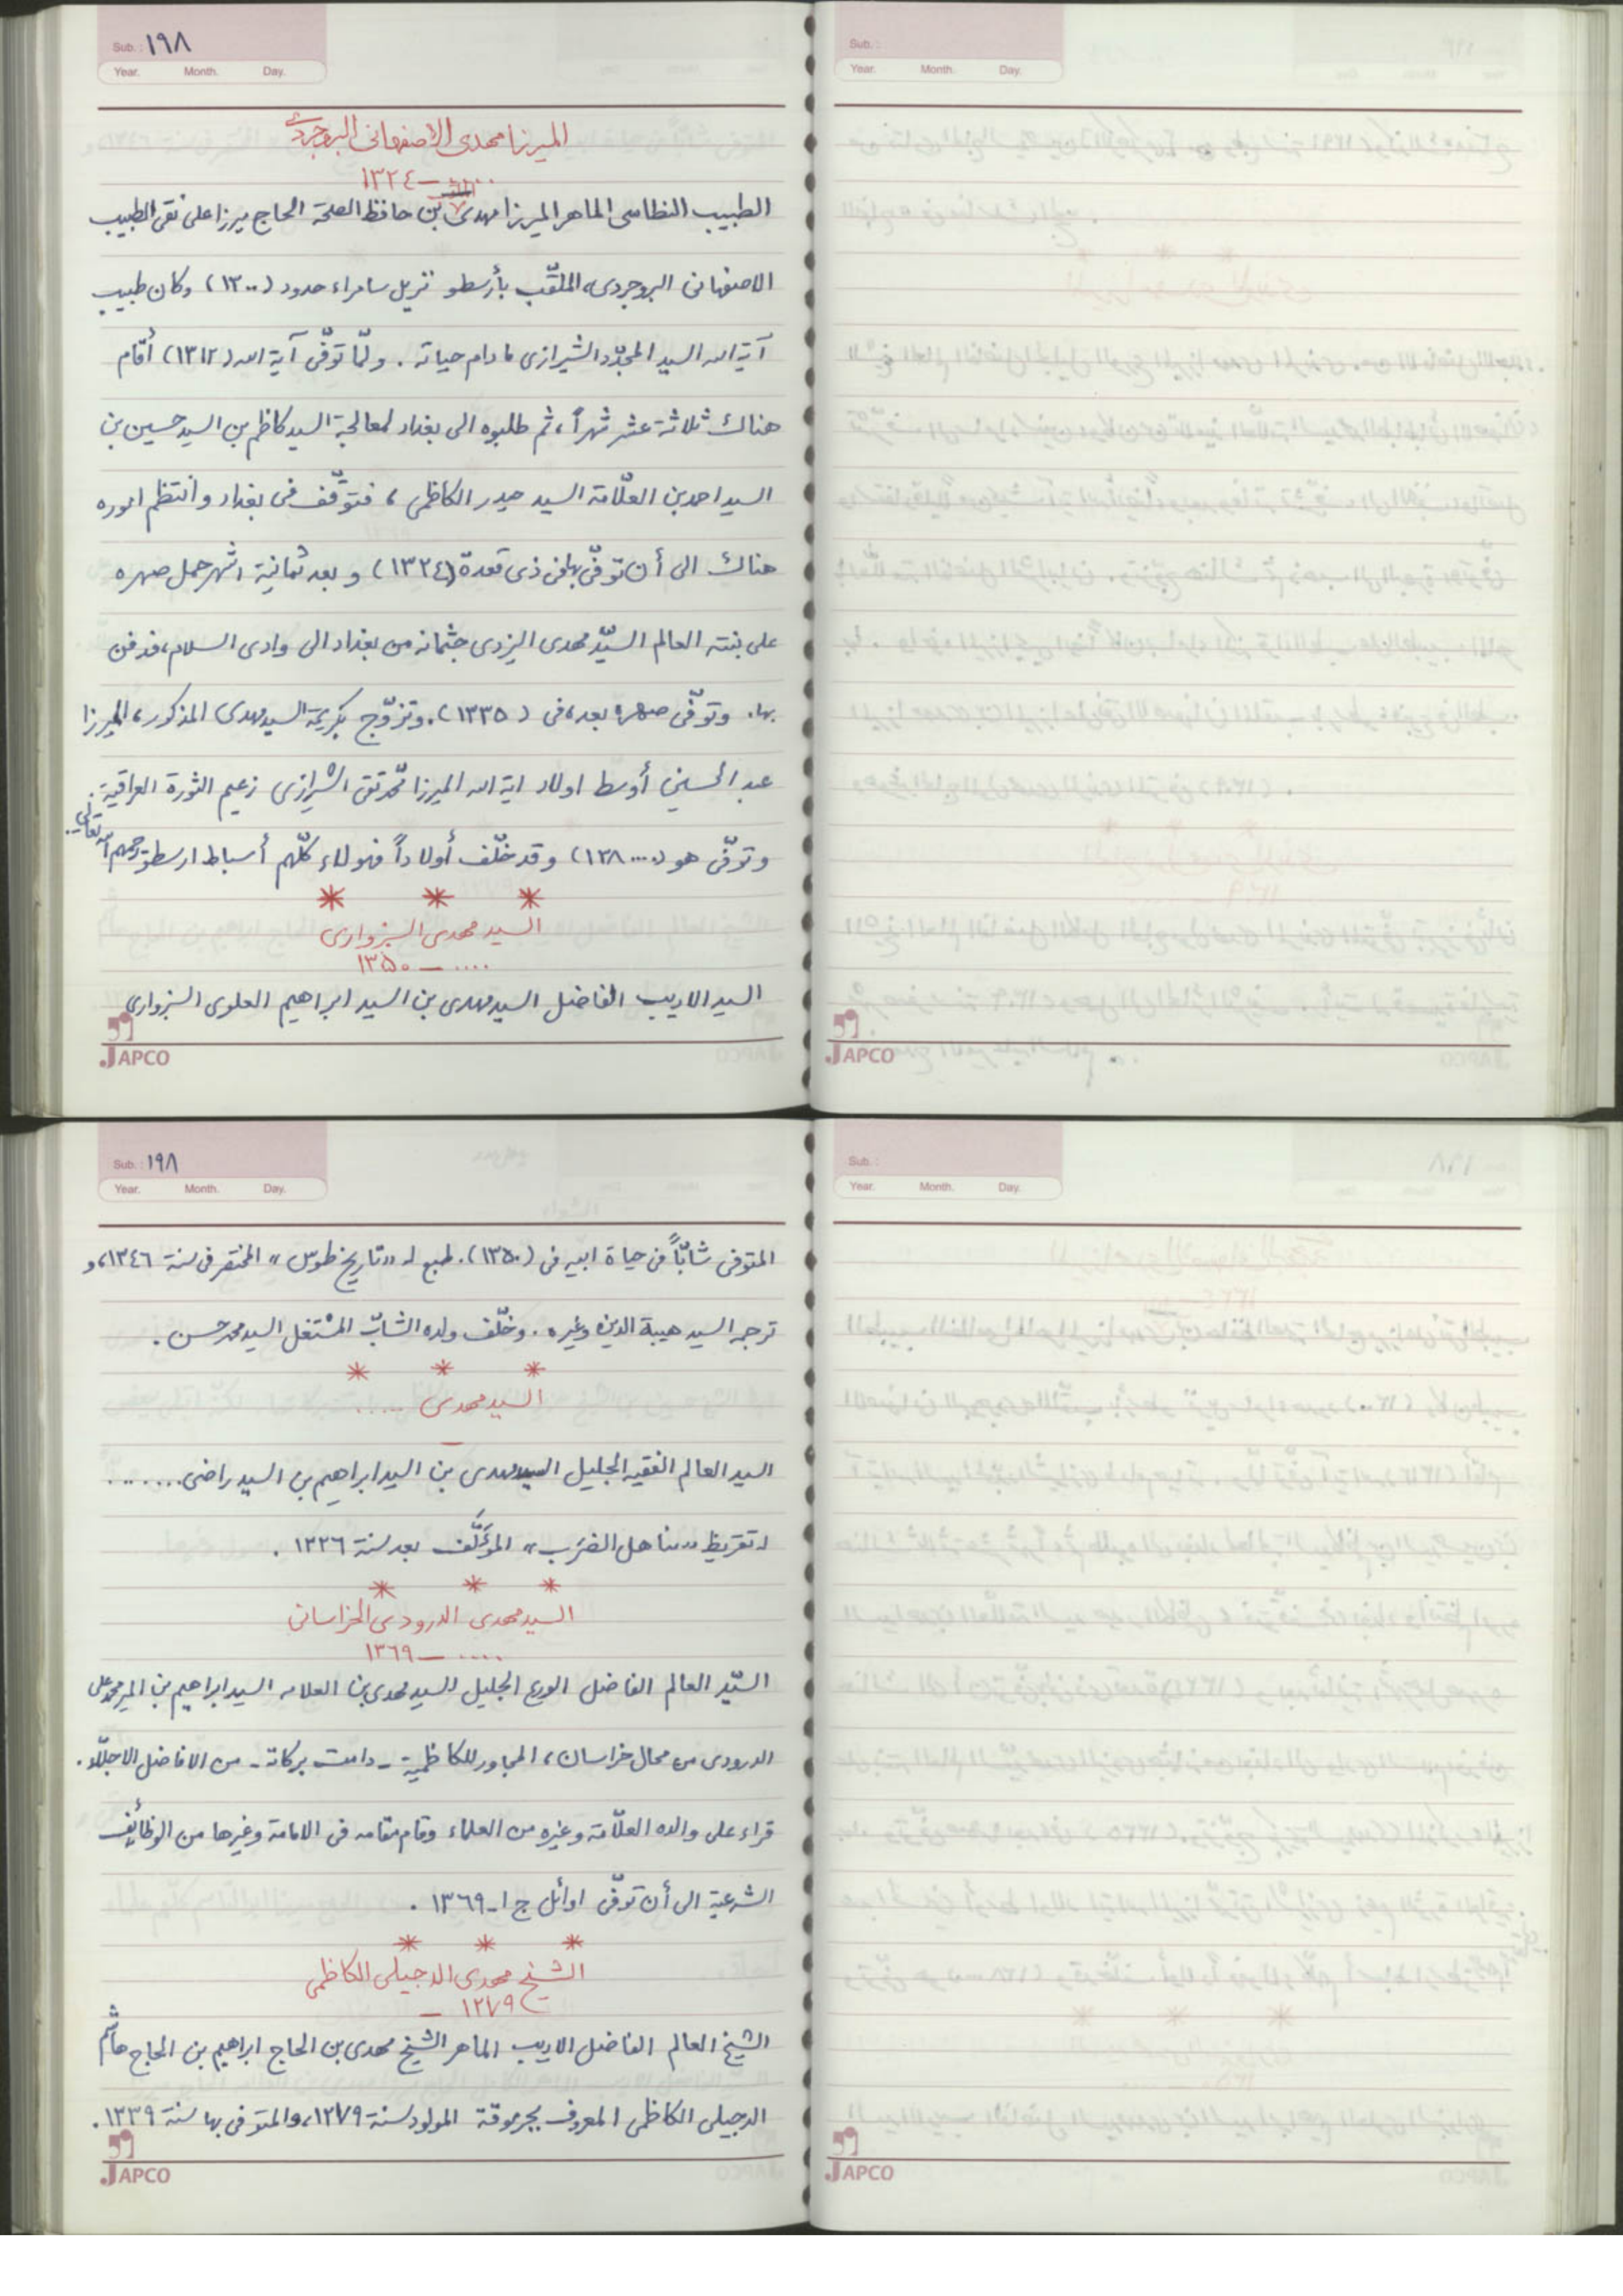 Sub.: ١٩٨
Year. Month. Day.
الميرزا مهدي الاصفهاني البروجردي
.... — ١٣٢٤
الطبيب النظاسى الماهر الميرزا مهدى بن حافظ الصحة الحاج ميرزا على نقى الطبيب
الاصفهانى البروجردى، الملقّب بأرسطو نزيل سامراء حدود (١٣٠٠) وكان طبيب
آية الله السيد المجدّد الشيرازى مادام حياته . ولمّا توفّى آية الله (١٣١٢) أقام
هناك ثلاثة عشر شهراً، ثم طلبوه الى بغداد لمعالجة السيد كاظم بن السيد حسين بن
السيد احمد بن العلّامة السيد حيدر الكاظمى، فتوقّف فى بغداد وانتظم اموره
هناك الى أن توفّى بها فى ذى قعدة (١٣٢٤) و بعد ثمانية اشهر حمل صهره
على بنته العالم السيّد مهدى اليزدى جثمانه من بغداد الى وادى السلام، فدفن
بها. وتوفّى صهره بعده فى (١٣٣٥). وتزوّج بكريمة السيد مهدى المذكور، الميرزا
عبد الحسين أوسط اولاد اية الله الميرزا محمّد تقى الشيرازى زعيم الثورة العراقية.
وتوفّى هو (....١٣٨) وقد خلّف أولاداً فهولاء كلّهم أسباط ارسطو رحمهم الله تعالى.
* * *
السيد مهدى السبزوارى
.... — ١٣٥٠
السيد الاديب الفاضل السيد مهدى بن السيد ابراهيم العلوى السبزوارى
JAPCO
Sub.:
Year. Month. Day.
JAPCO
Sub.: ١٩٨
Year. Month. Day.
المتوفى شابّاً فى حياة ابيه فى (١٣٥٠). طبع له «تاريخ طوس» المختصر فى سنة ١٣٤٦، و
ترجمه السيد هيبة الدين وغيره . وخلّف ولده الشابّ المشتغل السيد محمد حسن .
* * *
السيد مهدى .....
السيد العالم الفقيه الجليل السيد مهدى بن السيد ابراهيم بن السيد راضى........
له تقريظ «مناهل الضَرَب» المؤلَّف بعد سنة ١٣٢٦ .
* * *
السيد مهدى الدرودى الخراسانى
.... — ١٣٦٩
السيّد العالم الفاضل الورع الجليل السيد مهدى بن العلامه السيد ابراهيم بن المير محمد على
الدرودى من محال خراسان، المجاور للكاظمية ـ دامت بركاته ـ من الافاضل الاجلّاء.
قراء على والده العلّامة وغيره من العلماء وقام مقامه فى الامامة وغيرها من الوظائف
الشرعية الى أن توفّى اوائل ج١ـ١٣٦٩ .
* * *
الشيخ مهدى الدجيلى الكاظمى
١٢٧٩ —
الشيخ العالم الفاضل الاديب الماهر الشيخ مهدى بن الحاج ابراهيم بن الحاج هاشم
الدجيلى الكاظمى المعروف بجرموقة المولود سنة ١٢٧٩، والمتوفى بها سنة ١٣٣٩ .
JAPCO
Sub.:
Year. Month. Day.
JAPCO